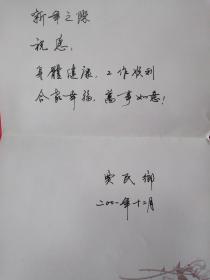 新年之际
祝您:
身體健康、工作顺利
合家幸福、萬事如意!
民
二00一年十二月